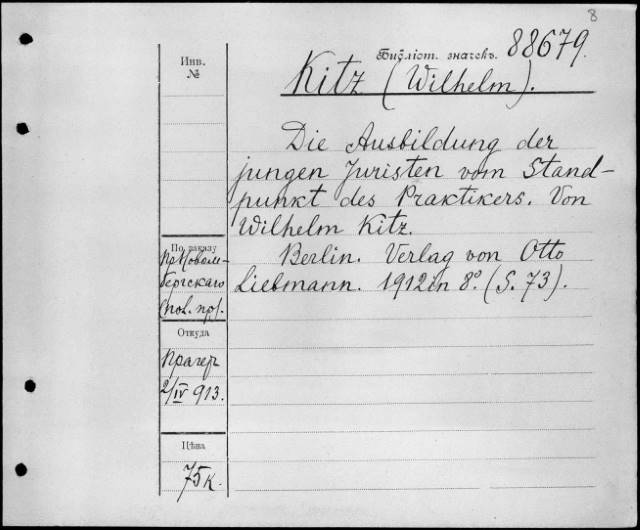 8
Инв.
№
Библіот. значекъ.
88679.
Kitz (Wilhelm).
Die Ausbildung der
jungen Juristen vom Stand-
punkt des Praktikers. Von
Wilhelm Kitz.
Berlin. Verlag von Otto
Liebmann. 1912 in 8º. (S. 73).
По заказу
бергскаго
Откуда
Прагер
2/IV 913.
Цѣна
75 к.